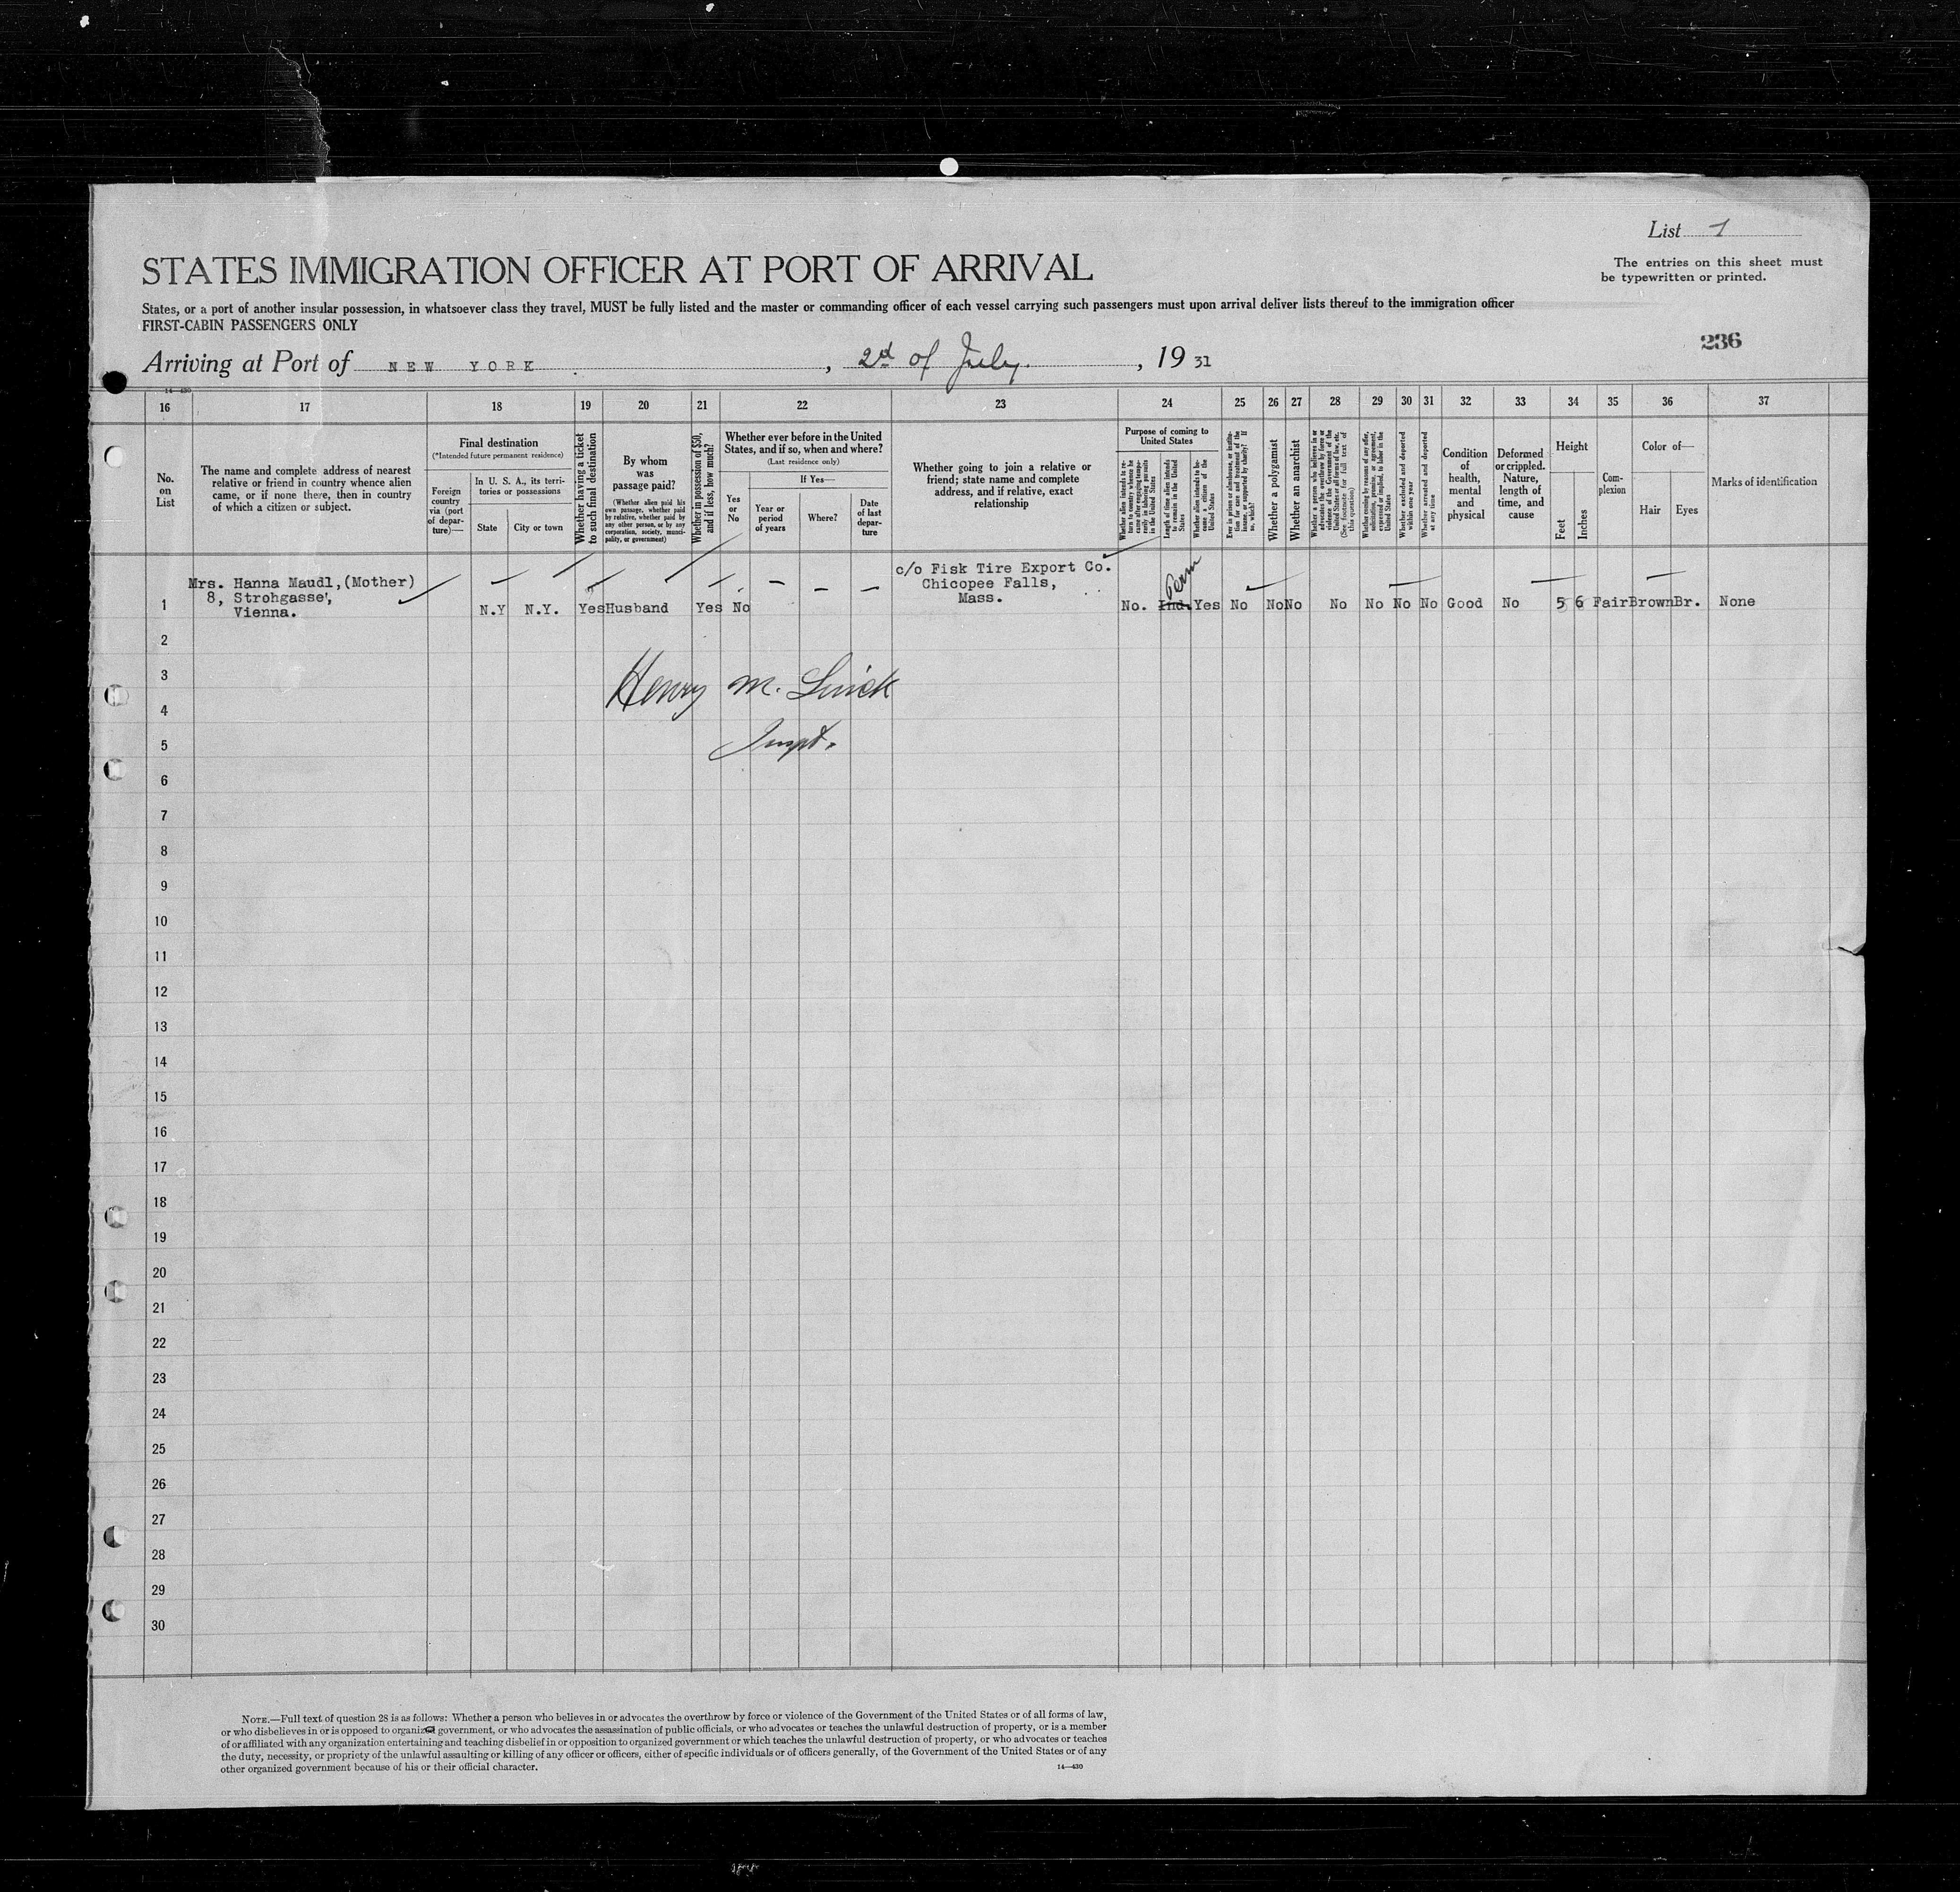 List 1
STATES IMMIGRATION OFFICER AT PORT OF ARRIVAL
The entries on this sheet must
be typewritten or printed.
States, or a port of another insular possession, in whatsoever class they travel, MUST be fully listed and the master or commanding officer of each vessel carrying such passengers must upon arrival deliver lists thereof to the immigration officer
FIRST-CABIN PASSENGERS ONLY
236
Arriving at Port of NEW YORK, 2d of July, 1931
14—430
16 17 18 19 20 21 22 23 24 25 26 27 28 29 30 31 32 33 34 35 36 37
No.
on
List
The name and complete address of nearest
relative or friend in country whence alien
came, or if none there, then in country
of which a citizen or subject.
Final destination
(*Intended future permanent residence)
Foreign
country
via (port
of depar-
ture)—
In U. S. A., its terri-
tories or possessions
State
City or town
Whether having a ticket
to such final destination
By whom
was
passage paid?
(Whether alien paid his
own passage, whether paid
by relative, whether paid by
any other person, or by any
corporation, society, munci-
pality, or government)
Whether in possession of $50,
and if less, how much?
Whether ever before in the United
States, and if so, when and where?
(Last residence only)
Yes
or
No
If Yes—
Year or
period
of years
Where?
Date
of last
depar-
ture
Whether going to join a relative or
friend; state name and complete
address, and if relative, exact
relationship
Purpose of coming to
United States
Whether alien intends to re-
turn to country whence he
came after engaging tempo-
rarily in laboring pursuits
in the United States
Length of time alien intends
to remain in the United
States
Whether alien intends to be-
come a citizen of the
United States
Ever in prison or almshouse, or institu-
tion for care and treatment of the
insane, or supported by charity? If
so, which?
Whether a polygamist
Whether an anarchist
Whether a person who believes in or
advocates the overthrow by force or
violence of the Government of the
United States or all forms of law, etc.
(See footnote for full text of
this question)
Whether coming by reasons of any offer,
solicitation, promise, or agreement,
expressed or implied, to labor in the
United States
Whether excluded and deported
within one year
Whether arrested and deported
at any time
Condition
of
health,
mental
and
physical
Deformed
or crippled.
Nature,
length of
time, and
cause
Height
Feet
Inches
Com-
plexion
Color of—
Hair
Eyes
Marks of identification
Mrs. Hanna Maudl, (Mother)
8, Strohgasse,
Vienna.
c/o Fisk Tire Export Co.
Chicopee Falls,
Mass.
Perm
1 N.Y N.Y. Yes Husband Yes No No. Ind. Yes No No No No No No No Good No 5 6 Fair Brown Br. None
2
3
Henry M.
4
Inspt.
5
6
7
8
9
10
11
12
13
14
15
16
17
18
19
20
21
22
23
24
25
26
27
28
29
30
NOTE.—Full text of question 28 is as follows: Whether a person who believes in or advocates the overthrow by force or violence of the Government of the United States or of all forms of law,
or who disbelieves in or is opposed to organized government, or who advocates the assassination of public officials, or who advocates or teaches the unlawful destruction of property, or is a member
of or affiliated with any organization entertaining and teaching disbelief in or opposition to organized government or which teaches the unlawful destruction of property, or who advocates or teaches
the duty, necessity, or propriety of the unlawful assaulting or killing of any officer or officers, either of specific individuals or of officers generally, of the Government of the United States or of any
other organized government because of his or their official character.
14—430